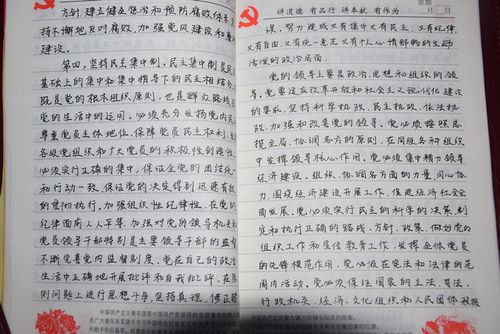 方针 建立健全惩治和预防腐败体系
持不懈地反对腐败,加强党风建设和廉
建设。
第四,坚持民主集中制,民主集中制是民
基础上的集中和集中指导下的民主相结
既是党的根本组织原则,也是群众路线在
党的生活中的运用,必须充分发扬党内民
尊重党员主体地位,保障党员民主权利,
各级党组织和广大党员的积极性创造性,
必须实行正确的集中,保证全党的团结统
和行动一致,保证党的决定得到迅速有效
的贯彻执行,加强组织性纪律性,在党的
纪律面前人人平等,加强对党的领导机关
党员领导干部特别是主要领导干部的监督
不断完善党内监督制度,党在自己的政治
生活中正确地开展批评和自我批评,在原
则问题上进行思想斗争,坚持真理,修正
中国共产主义青年团是中国共产党领导的先进青年的
是广大青年在实践中学习中国特色社会主义和
讲道德 有品行 讲奉献 有作为
星期
月 日
误,努力造成又有集中又有民主,又有纪律
又有自由,又有统一意志又有个人心情舒畅的生动
活泼的政治局面。
党的领导主要是政治、思想和组织的领
导,党要适应改革开放和社会主义现代化建设
的要求,坚持科学执政、民主执政、依法执
政,加强和改善党的领导,党必须按照总
揽全局、协调各方的原则,在同级各种组织
中发挥领导核心作用,党必须集中精力领导
经济建设,组织、协调各方面的力量,同心协
力,围绕经济建设开展工作,促进经济社会全
面发展,党必须实行民主的科学的决策,制
定和执行正确的路线、方针、政策,做好党的
组织工作和宣传教育工作,发挥全体党员
的先锋模范作用,党必须在宪法和法律的范
围内活动,党必须保证国家的立法、司法、
行政机关,经济、文化组织和人民团体积极